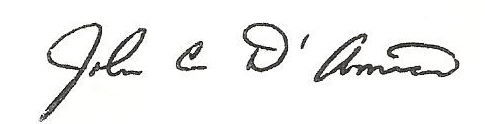 John C D'Amico